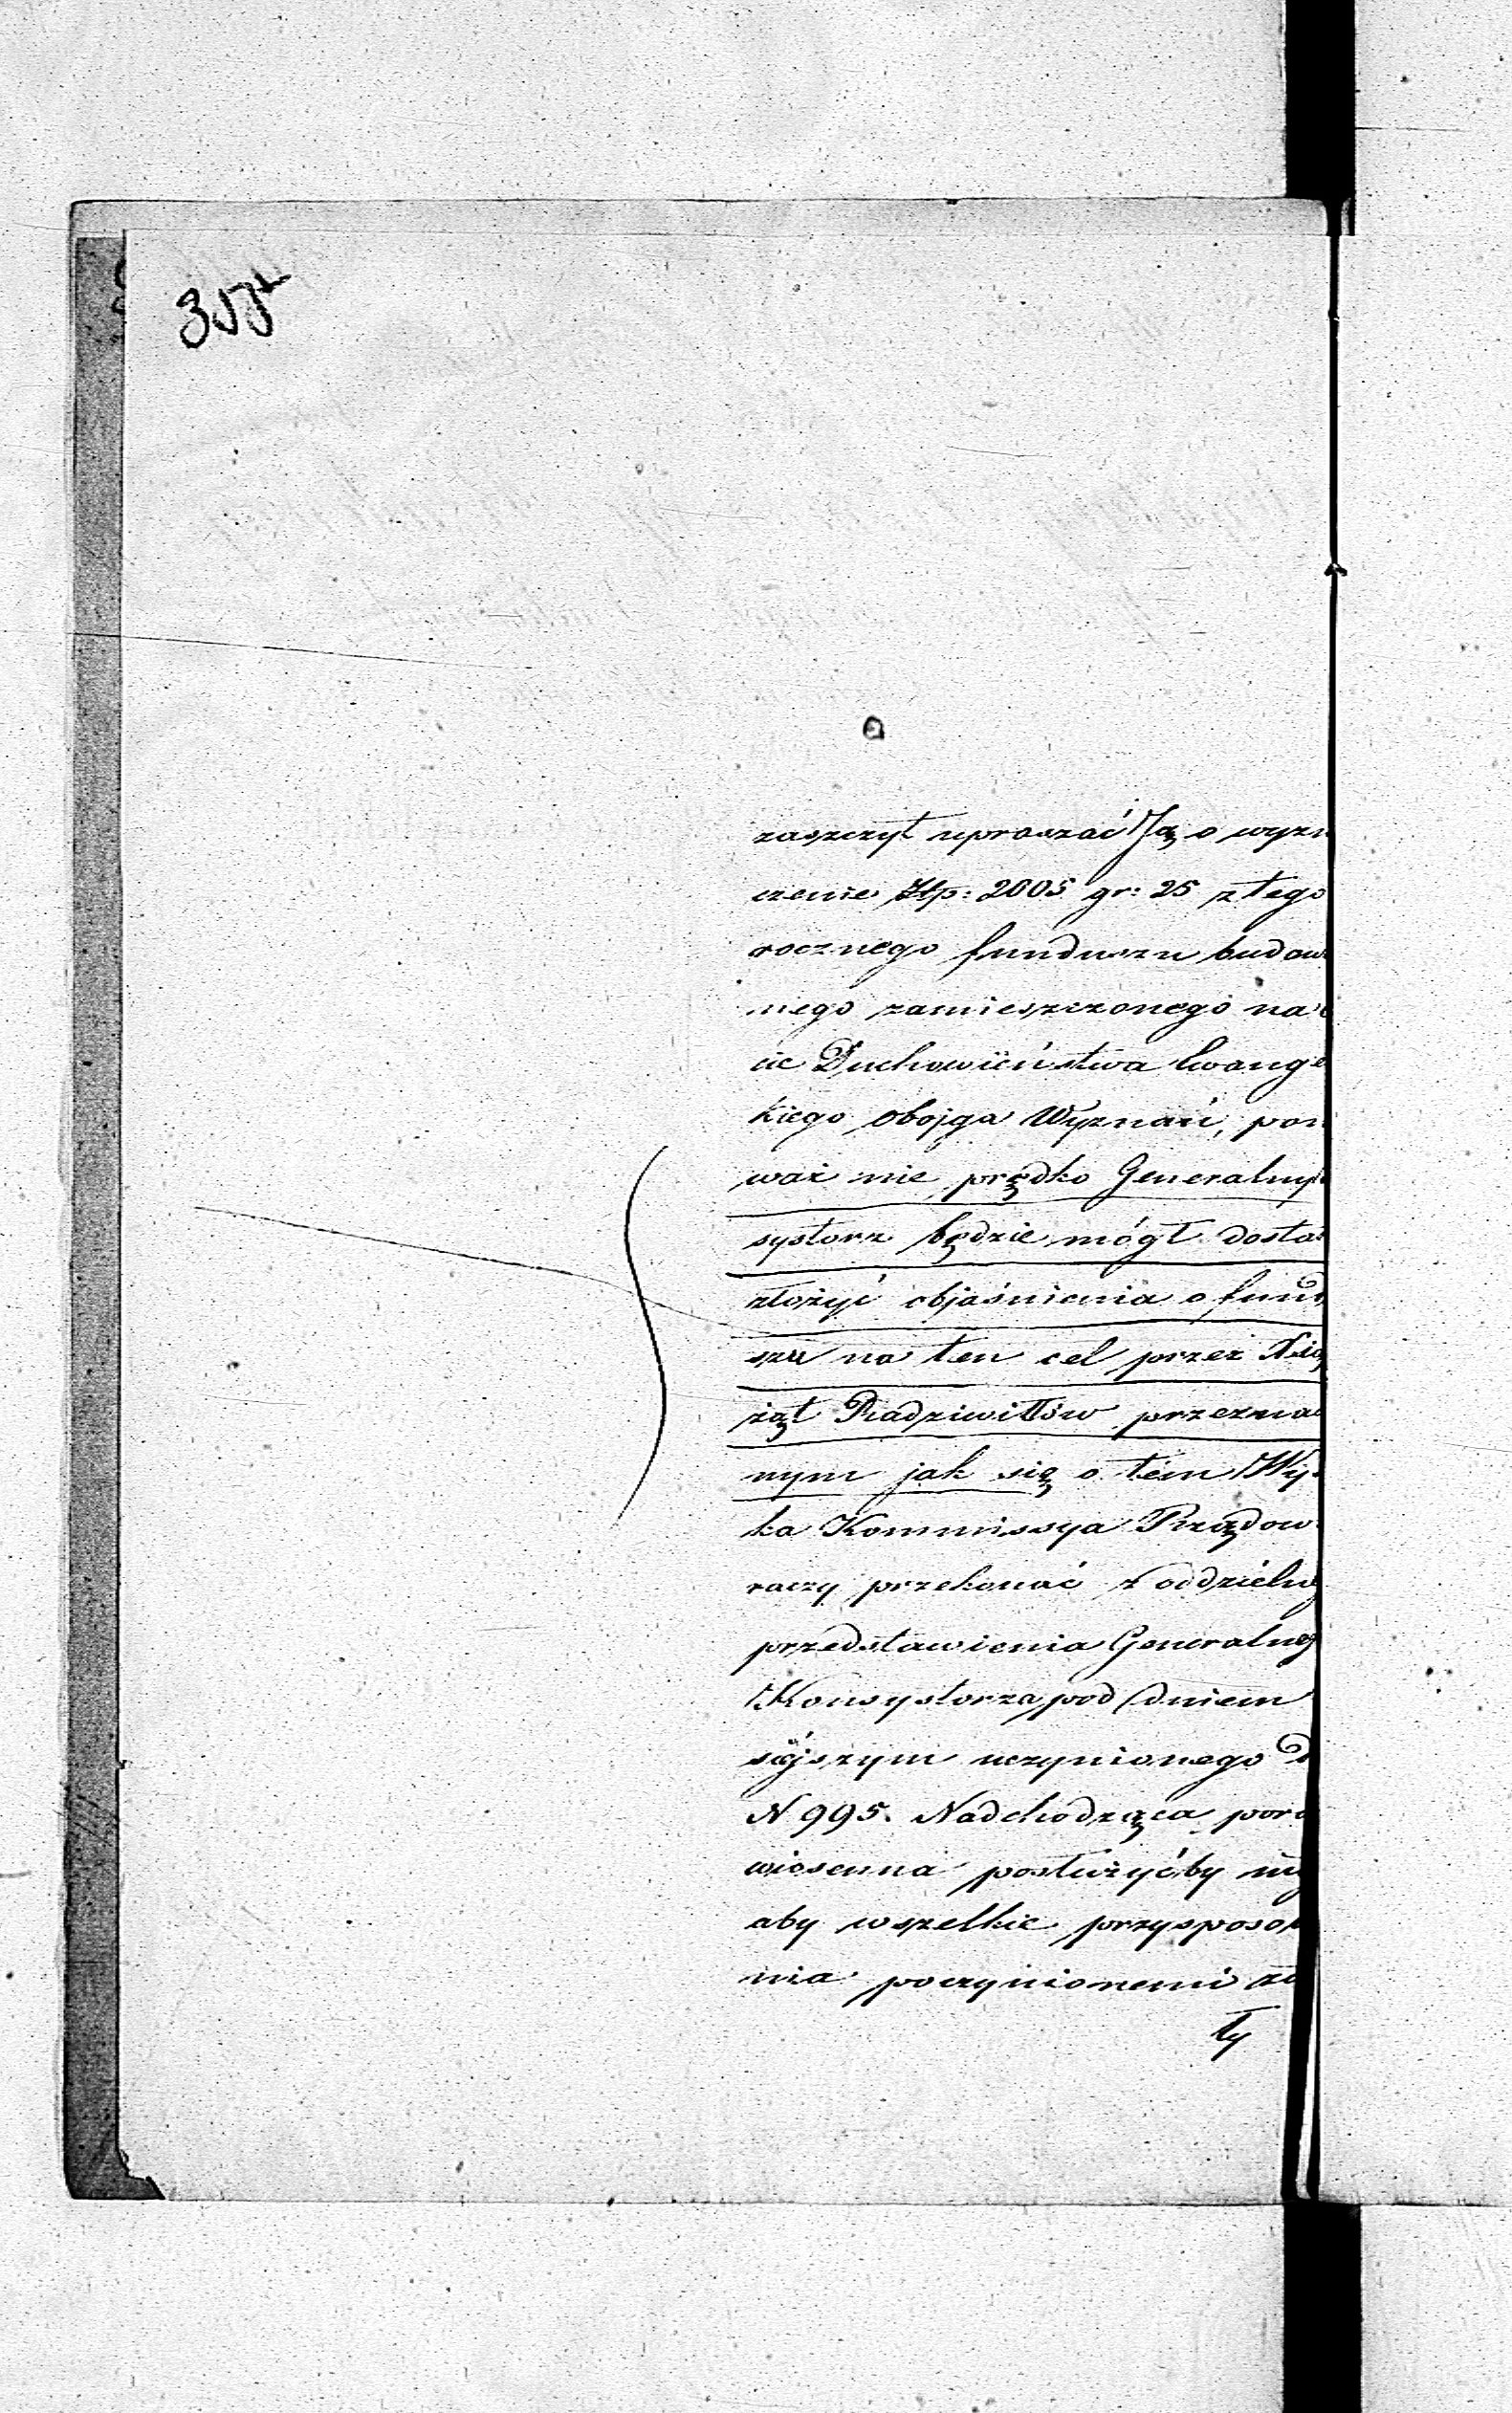 zaszczyt upraszać Ją o wyzn
czenie Złp: 2005 gr: 25 z tego
rocznego funduszu budow
nego zamieszczonego na
cie Duchowieństwa Ewange
kiego obojga Wyznań, pon
waż nie prędko Generalny
systorz będzie mógł dosta
złożyć objaśnienia o fund
szu na ten cel przez Xią
żąt Radziwiłłów przezna
nym jak się o tem Wys
ka Kommissya Rządow
raczy przekonać z oddzielne
przedstawienia Generalneg
Konsystorza pod dniem
siéjszym uczynionego d
N 995. Nadchodząca pora
wiosenna posłużyćby
aby wszelkie przysposob
nia poczynionemi zo
ły